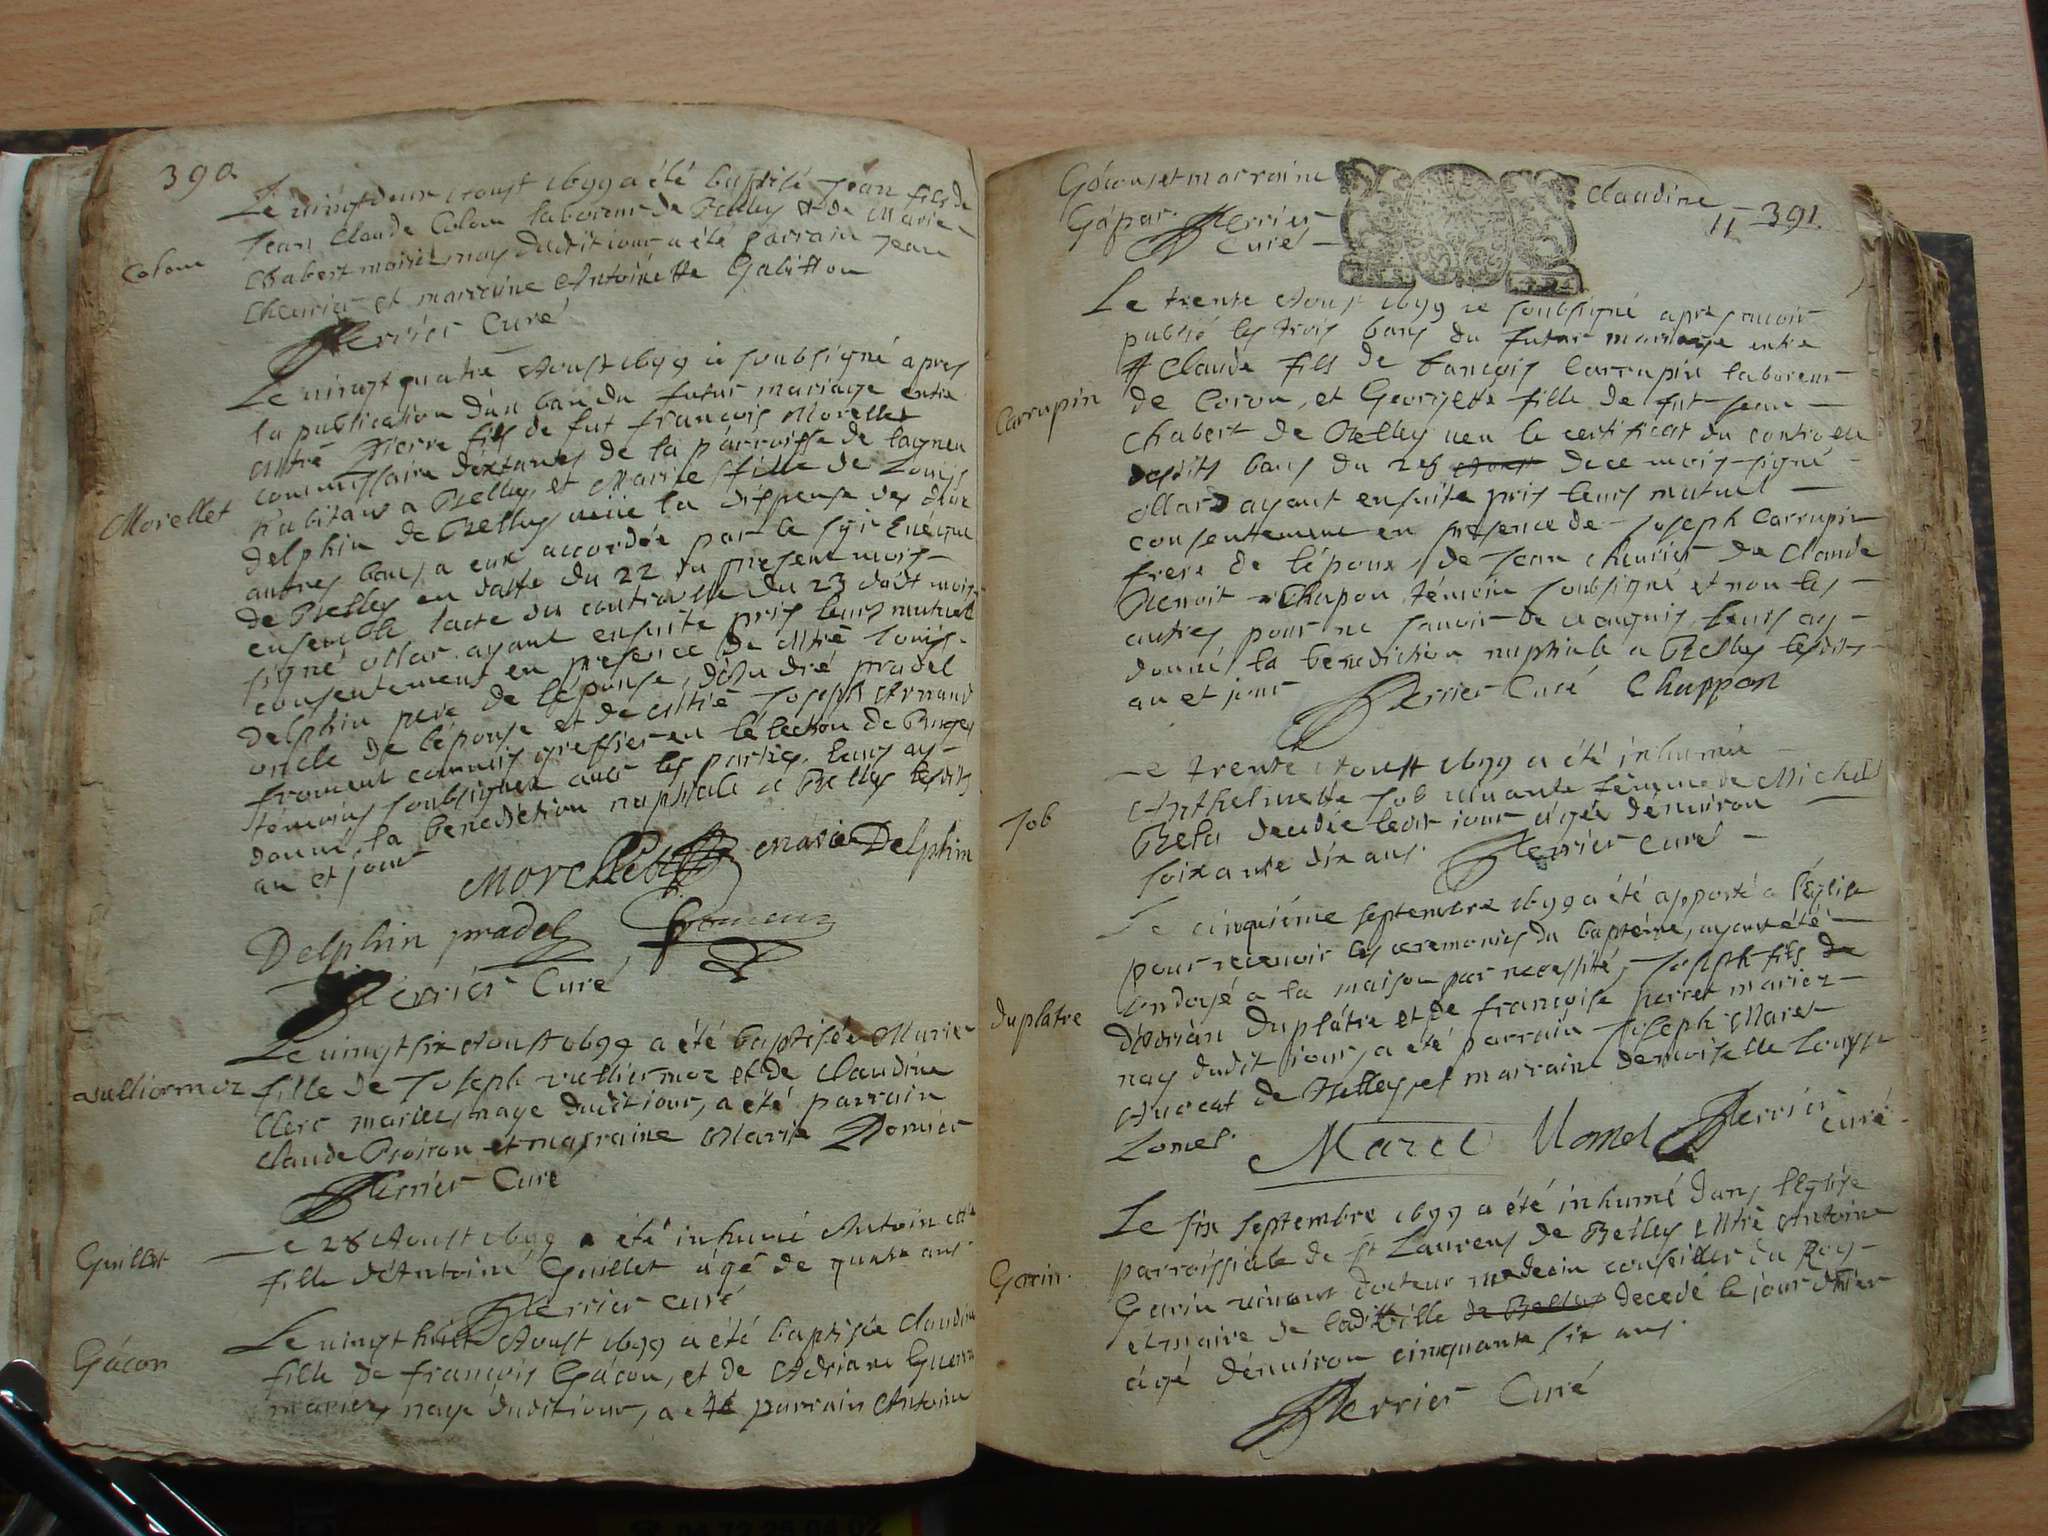 390.
Le vingtdeux Aoust 1699 a été baptisé Jean fils de
Jean Claude Colon laboureur de Belley et de Marie
Colon
Chabert mariés nay dudit jour a été parrain Jean
Cheurier et marraine Antoinette Gabitton
Perrier Curé
Le vingt quatre Aoust 1699 ie soubsigné apres
la publication d'un ban du futur mariage entre
Mtre Pierre fils de fut françois Morellet
commissaire de la parroisse de lagneu
Morellet
habitant a Belley, et Marie fille de Louis
delphin de Belley, veüe la dispense des deux
autres bans a eux accordée par le sgr Evéque
de Belley en datte du 22 du present mois
ensemble lacte du controlle du 23 dudit mois
signé ollar ayant ensuite pris leurs mutuel
consentement en presence de Mtre Louis
Delphin pere de lépouse, d'André pradel
oncle de lépouse et de Mtre Joseph Arnaud
froment commis greffier en lélection de Bugey
témoins soubsignez avec les parties, leurs ay
donné la benediction nuptiale a Belley lesdits
an et jour
Morellet Marie Delphin
Delphin pradel froment
Perrier Curé
Le vingt six Aoust 1699 a été baptisée Marie
vulliermoz
fille de Joseph vulliermoz et de Claudine
Clerc mariés, naye dudit jour, a été parrain
Claude Poiron et marraine Marie Bornier
Perrier Curé
Le 28 Aoust 1699 a été inhumé Antoinette
Guillet
fille d'Antoine Guillet agé de quatre ans
Perrier curé
Le vingt huit Aoust 1699 a été baptisée Claudine
Gácon
fille de françois Gácon, et de Adriane
mariez, naye dudit jour, a été parrain Antoine
Gácon et marraine Claudine
391.
Gápar. Perrier
Curé
Le trente Aoust 1699 ie soubsigné apres avoir
publié les trois bans du futur mariage entre
Claude fils de françois Carrupin laboreur
Carrupin
de Coron, et Georgette fille de fut Jean
Chabert de Belley veu le certificat du controlle
desdits bans du 28 Aoust de ce mois signé
ollard ayant ensuite pris leurs mutuel
consentement en presence de Joseph Carrupin
frere de l'époux, de Jean cheurier de Claude
Benoit Chapon témoin soubsigné et non les
autres pour ne sauoir de ce enquis, leurs ay
donné la benediction nuptiale a Belley lesdits
an et jour Perrier Curé Chappon
Le trente Aoust 1699 a été inhumée
Anthelmette Job vivante femme de Michel
Job
Beta decedée ledit jour agée denviron
soixante dix ans. Perrier curé
Le cinquiéme septembre 1699 a été apporté a l'Eglise
pour recevoir les ceremonies du baptéme, ayant été
ondoyé a la maison par necessité, Joseph fils de
duplátre
d'Adrian Duplátre et de françoise perret mariez
nay dudit jour, a été parrain Joseph Marel
Auocat de Belley, et marraine demoiselle Louyse
Lomel. Marel Perrier
curé.
Le six septembre 1699 a été inhumé dans l'Eglise
parroissiale de St Laurens de Belley Mtre Antoine
Garin.
Garin viuant docteur medecin conseiller du Roy
et maire de ladit ville de Belley decedé le jour d'hier
ágé denuiron cinquante six ans.
Perrier Curé